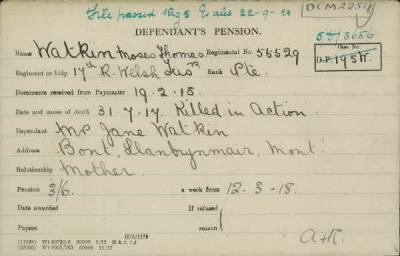 File passed Reg 5 Wales 22-9-20
DCM 2251
DEPENDANT'S PENSION.
Name Watkin Moses Thomas Regimental No 55529
5D/3050
Case No.
Regiment or Ship 17th R. Welsh Fusrs Rank Pte.
D.P. 1951
Documents received from Paymaster 19.2.18.
Date and cause of death 31.7.17. Killed in Action.
Dependant Mrs Jane Watkin
Address Bont, Llanbrynmair, Mont:
Relationship Mother.
Pension 3/6. a week from 12-3-18.
Date awarded If refused
Papers reason
A+R.